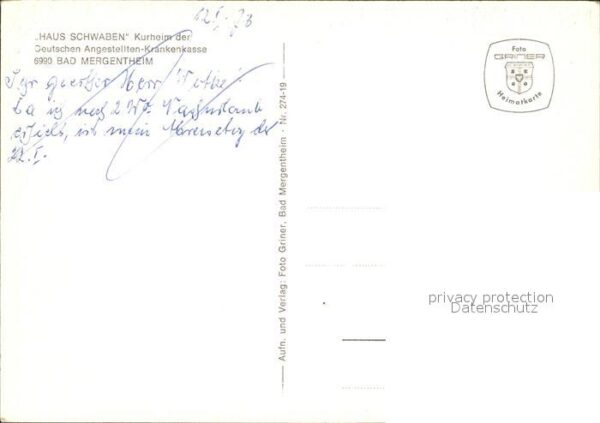 12.I.73
„HAUS SCHWABEN" Kurheim der
Deutschen Angestellten-Krankenkasse
6990 BAD MERGENTHEIM
Sehr geehrter Herr
Da ich noch 2 Wo.
erhielt, ist mein der
22.I.
Aufn. und Verlag: Foto Griner, Bad Mergentheim · Nr. 274-19
Foto
GRINER
Heimatkarte
privacy protection
Datenschutz